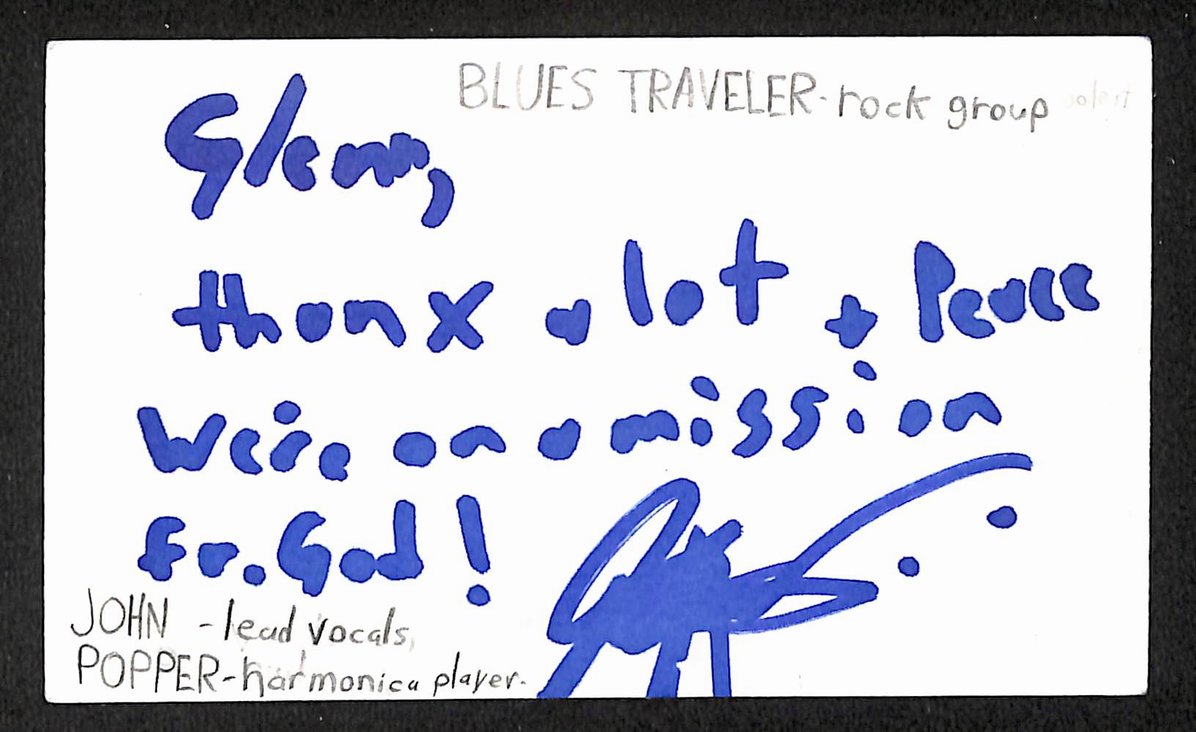 BLUES TRAVELER-rock group
Glenn,
thanx a lot + Peace
We're on a mission
fr. God!
JOHN - lead vocals,
POPPER-harmonica player.